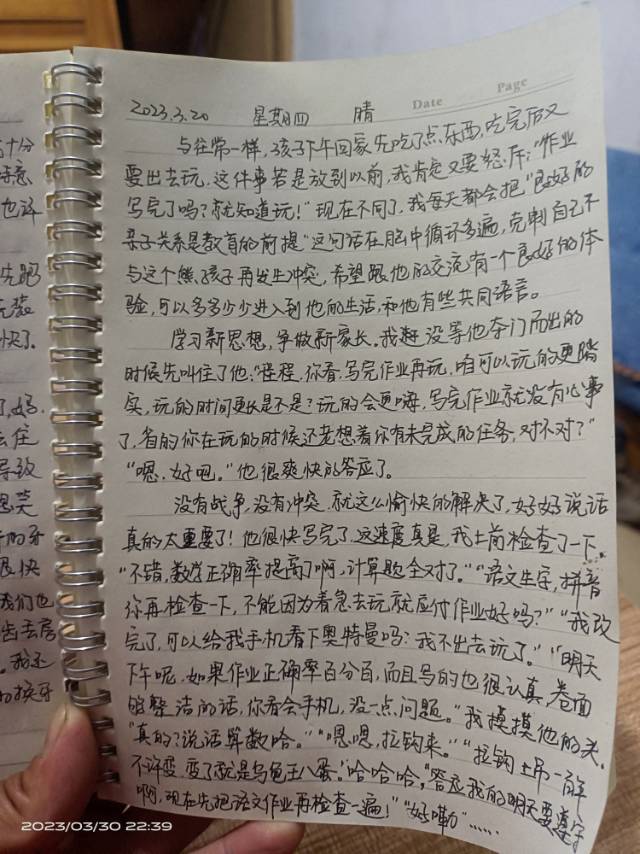 十分
意
也许
先跑
快了.
了,妈.
去住
导致
思笑
的牙
很快
我们也
齿去房
。我还
的换牙
2023.3.20 星期四 晴 Date Page
与往常一样,孩子下午回家先吃了点东西,吃完后又
要出去玩.这件事若是放到以前,我肯定又要怒斥:“作业
写完了吗?就知道玩!”现在不同了,我每天都会把“良好的
亲子关系是教育的前提”这句话在脑中循环多遍,克制自己不
与这个熊孩子再发生冲突,希望跟他的交流有一个良好的体
验,可以多多少少进入到他的生活,和他有些共同语言。
学习新思想,争做新家长.我赶没等他夺门而出的
时候先叫住了他:“程程,你看,写完作业再玩,咱可以玩的更踏
实,玩的时间更长是不是?玩的会更嗨,写完作业就没有心事
了,省的你在玩的时候还老想着你有未完成的任务,对不对?”
“嗯,好吧。”他很爽快的答应了。
没有战争,没有冲突,就这么愉快的解决了,好好说话
真的太重要了!他很快写完了,这速度真是,我上前检查了一下。
“不错,数学正确率提高了啊,计算题全对了。”“语文生字,拼音
你再检查一下,不能因为着急去玩就应付作业好吗?”“我改
完了,可以给我手机看下奥特曼吗?我不出去玩了。”“明天
下午呢,如果作业正确率百分百,而且写的也很认真,卷面
够整洁的话,你看会手机,没一点问题。”我摸摸他的头.
“真的?说话算数哈。”“嗯嗯,拉钩来。”“拉钩上吊一
不许变,变了就是乌龟王八蛋。”哈哈哈,“答应我的明天要遵守
啊,现在先把语文作业再检查一遍!”“好嘞”……
2023/03/30 22:39